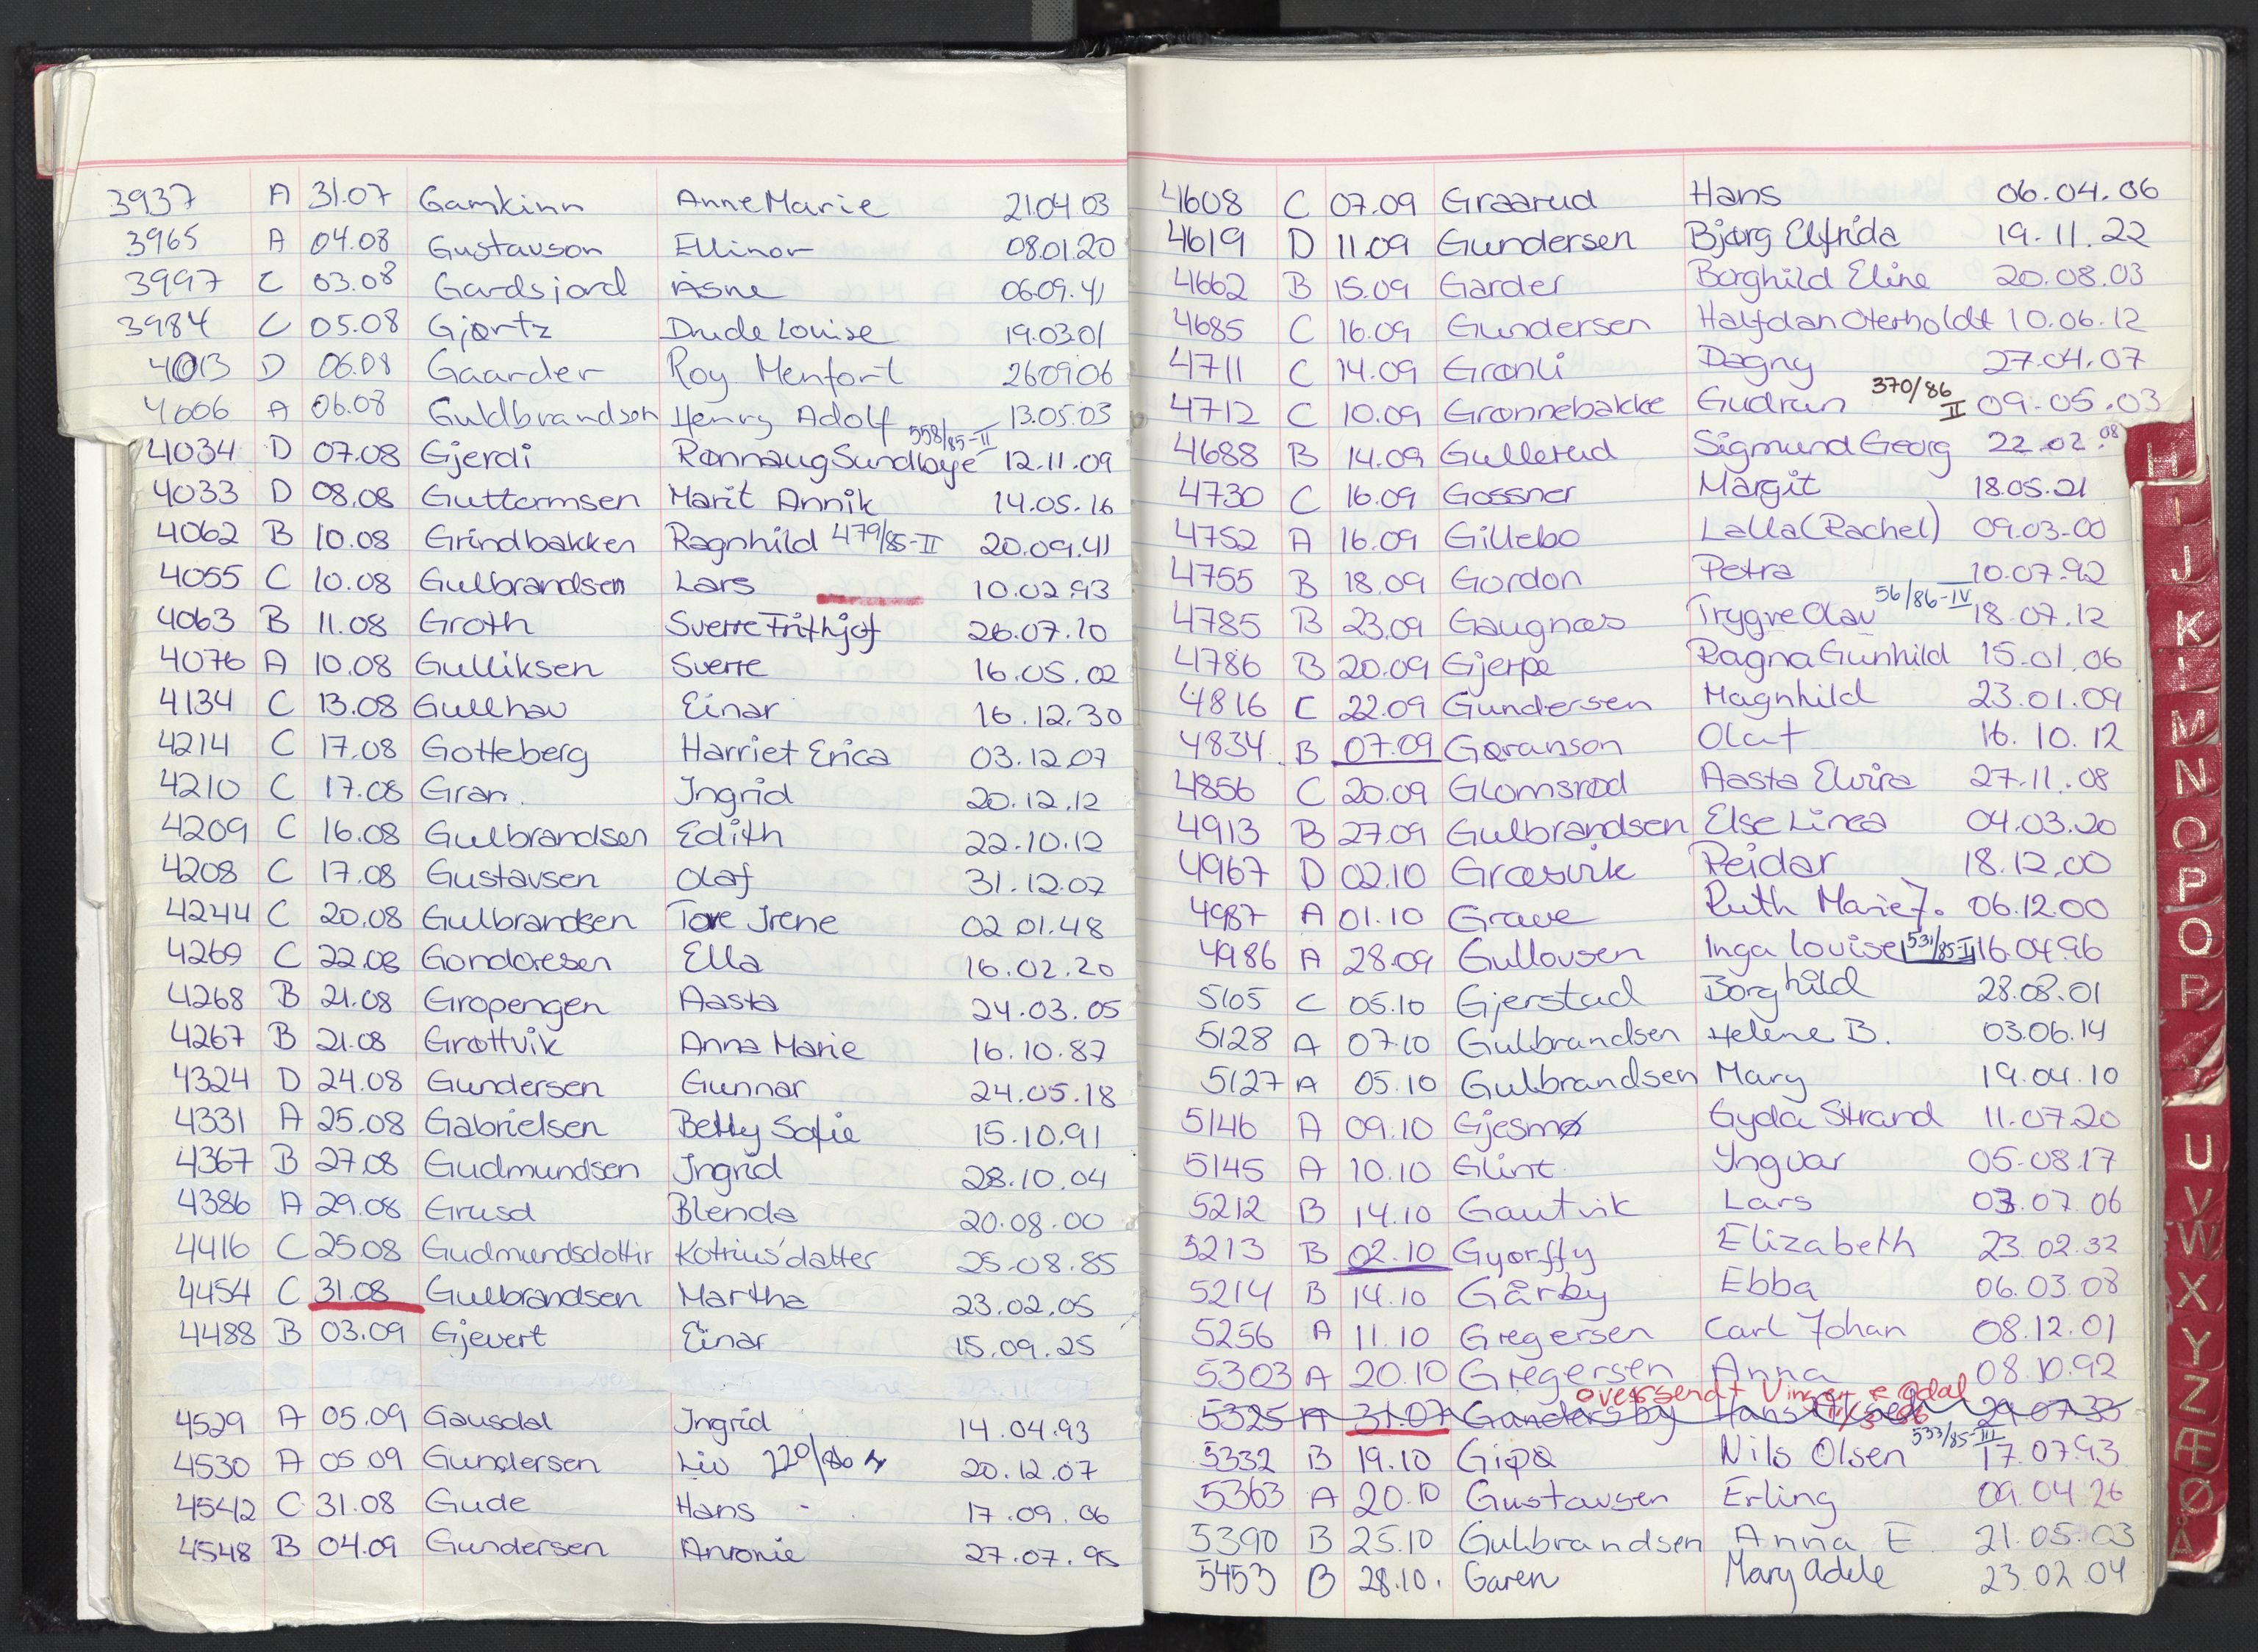 3937 A 31.07 Gamkinn Anne Marie 21.04 03
3965 A 04.08 Gustavson Ellinor 08.01.20
3997 C 03.08 Gardsjord Åsne 06.09.41
3984 C 05.08 Gjørtz Drude Louise 19.03.01
4013 D 06.08 Gaarder Roy Menfort 26 09 06
4006 A 06.08 Guldbrandsen Henry Adolf 13.05.03
4034 D 07.08 Gjerdi Rønnaug Sundbye 558/85-II 12.11.09
4033 D 08.08 Guttormsen Marit Annik 14.05.16
4062 B 10.08 Grindbakken Ragnhild 479/85-II 20.09.41
4055 C 10.08 Gulbrandsen Lars 10.02.93
4063 B 11.08 Groth Sverre Frithjof 26.07.10
4076 A 10.08 Gulliksen Sverre 16.05.02
4134 C 13.08 Gullhav Einar 16.12.30
4214 C 17.08 Gotteberg Harriet Erica 03.12.07
4210 C 17.08 Gran. Ingrid 20.12.12
4209 C 16.08 Gulbrandsen Edith 22.10.12
4208 C 17.08 Gustavsen Olaf 31.12.07
4244 C 20.08 Gulbrandsen Tove Irene 02 01.48
4269 C 22.08 Gondoresen Ella 16.02.20
4268 B 21.08 Gropengen Aasta 24.03.05
4267 B 21.08 Grøttvik Anna Marie 16.10.87
4324 D 24.08 Gundersen Gunnar 24.05.18
4331 A 25.08 Gabrielsen Betty Sofie 15.10.91
4367 B 27.08 Gudmundsen Ingrid 28.10.04
4386 A 29.08 Grusd Blenda 20.08.00
4416 C 25.08 Gudmundsdottir 25.08.85
4454 C 31.08 Gulbrandsen Martha 23.02.05
4488 B 03.09 Gjevert Einar 15.09.25
4529 A 05.09 Gausdal Ingrid 14.04.93
4530 A 05 09 Gundersen Liv 220/86 20.12.07
4542 C 31.08 Gude Hans - 17.09.06
4548 B 04.09 Gundersen Antonie 27.07.95
4608 C 07.09 Graarud Hans 06.04.06
4619 D 11.09 Gundersen Bjørg Elfrida 19.11.22
4662 B 15.09 Garder Borghild Eline 20.08.03
4685 C 16.09 Gundersen Halfdan Oterholdt 10.06.12
4711 C 14.09 Grønli Dagny 27.04.07
4712 C 10.09 Grønnebakke Gudrun 370/86 II 09.05.03
4688 B 14.09 Gullerud Sigmund Georg 22.02.08
4730 C 16.09 Gossner Margit 18.05.21
4752 A 16.09 Gillebo Lalla (Rachel) 09.03-00
4755 B 18.09 Gordon Petra 10.07.92
4785 B 23.09 Gaugnæs Trygve Olav 56/86-IV 18.07.12
4786 B 20.09 Gjerpe Ragna Gunhild 15.01.06
4816 C 22.09 Gundersen Magnhild 23.01.09
4834 B 07.09 Gøranson Olaf 16.10.12
4856 C 20.09 Glomsrød Aasta Elvira 27.11.08
4913 B 27.09 Gulbrandsen Else Linea 04.03.20
4967 D 02.10 Græsvik Reidar 18.12.00
4987 A 01.10 Grave Ruth Marie J. 06.12.00
4986 A 28.09 Gullovsen Inga Louise 531/85-II 16.04.96
5105 C 05.10 Gjerstad Borghild 28.08.01
5128 A 07.10 Gulbrandsen Helene B. 03.06.14
5127 A 05.10 Gulbrandsen Mary 19.04.10
5146 A 09.10 Gjesmø Gyda Strand 11.07.20
5145 A 10.10 Glint Yngvar 05.08.17
5212 B 14.10 Gautvik Lars 03.07.06
5213 B 02.10 Gyørffy Elizabeth 23.02.32
5214 B 14.10 Gårby Ebba 06.03.08
5256 A 11.10 Gregersen Carl Johan 08.12.01
5303 A 20.10 Gregersen Anna 08.10.92
oversendt
5325 A 31.07 Gandersby Hans 29.07.33
5332 B 19.10 Gipø Nils Olsen 533/85-III 17.07.93
5363 A 20.10 Gustavsen Erling 09.04.26
5390 B 25.10 Gulbrandsen Anna E. 21.05.03
5453 B 28.10. Garen Mary Adele 23.02.04
H
I
J
K
L
M
N
O
P
Q
R
U
V
W
X
Y
Z
Æ
Ø
Å